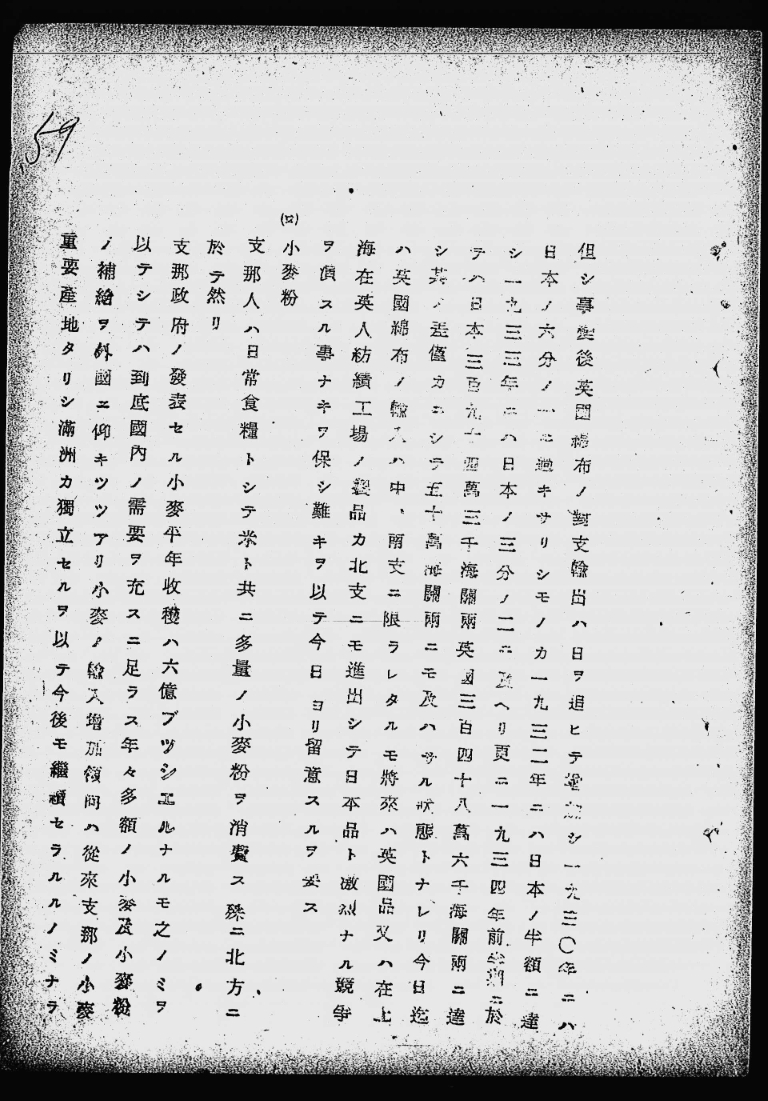 59
但シ事變後英國綿布ノ對支輸出ハ日ヲ追ヒテ增加シ一九三〇年ニハ
日本ノ六分ノ一ニ過キサリシモノカ一九三二年ニハ日本ノ半額ニ達
シ一九三三年ニハ日本ノ三分ノ二ニ及ヘリ更ニ一九三四年前半期ニ於
テハ日本三百九十四萬三千海關兩英國三百四十八萬六千海關兩ニ達
シ其ノ差僅カニシテ五十萬海關兩ニモ及ハサル狀態トナレリ今日迄
ハ英國綿布ノ輸入ハ中、南支ニ限ラレタルモ將來ハ英國品又ハ在上
海在英人紡績工場ノ製品カ北支ニモ進出シテ日本品ト激烈ナル競爭
ヲ演スル事ナキヲ保シ難キヲ以テ今日ヨリ留意スルヲ要ス
(ロ)小麥粉
支那人ハ日常食糧トシテ米ト共ニ多量ノ小麥粉ヲ消費ス殊ニ北方ニ
於テ然リ
支那政府ノ發表セル小麥平年收穫ハ六億ブツシエルナルモ之ノミヲ
以テシテハ到底國內ノ需要ヲ充スニ足ラス年々多額ノ小麥及小麥粉
ノ補給ヲ外國ニ仰キツツアリ小麥ノ輸入增加傾向ハ從來支那ノ小麥
重要產地タリシ滿洲カ獨立セルヲ以テ今後モ繼續セラルルノミナラ